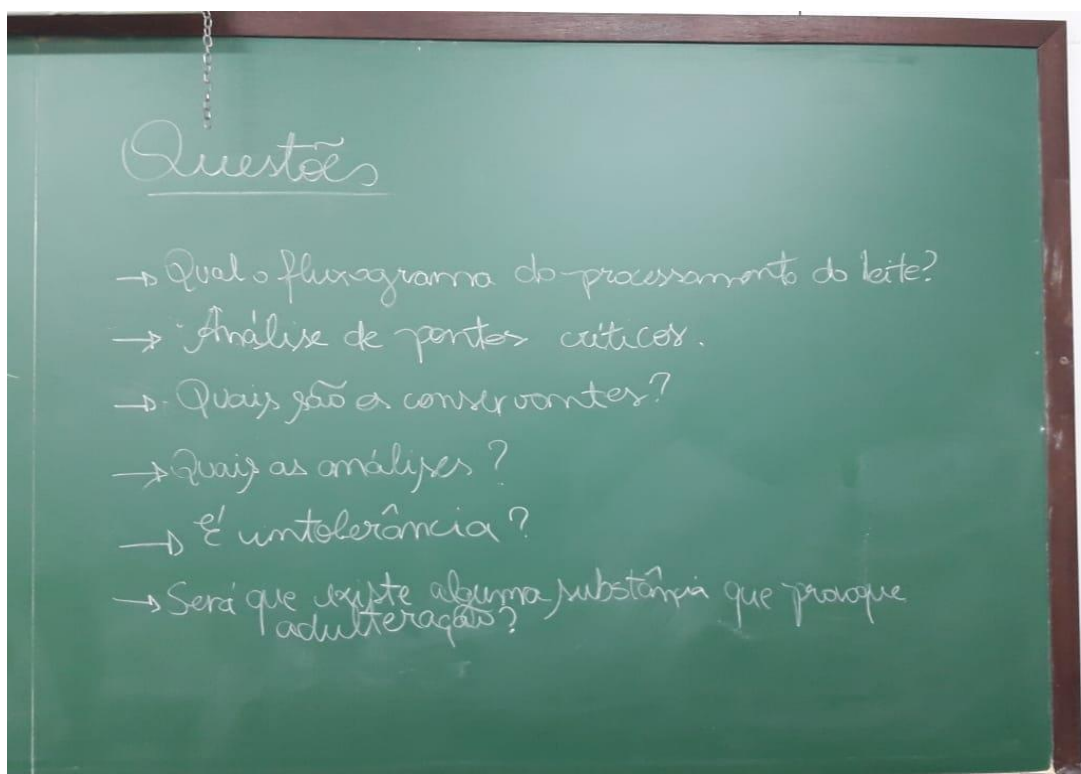 Questões
→ Qual o fluxograma do processamento do leite?
→ Análise de pontos críticos.
→ Quais são os conservantes?
→ Quais as análises?
→ É intolerância?
→ Será que existe alguma substância que provoque
adulteração?